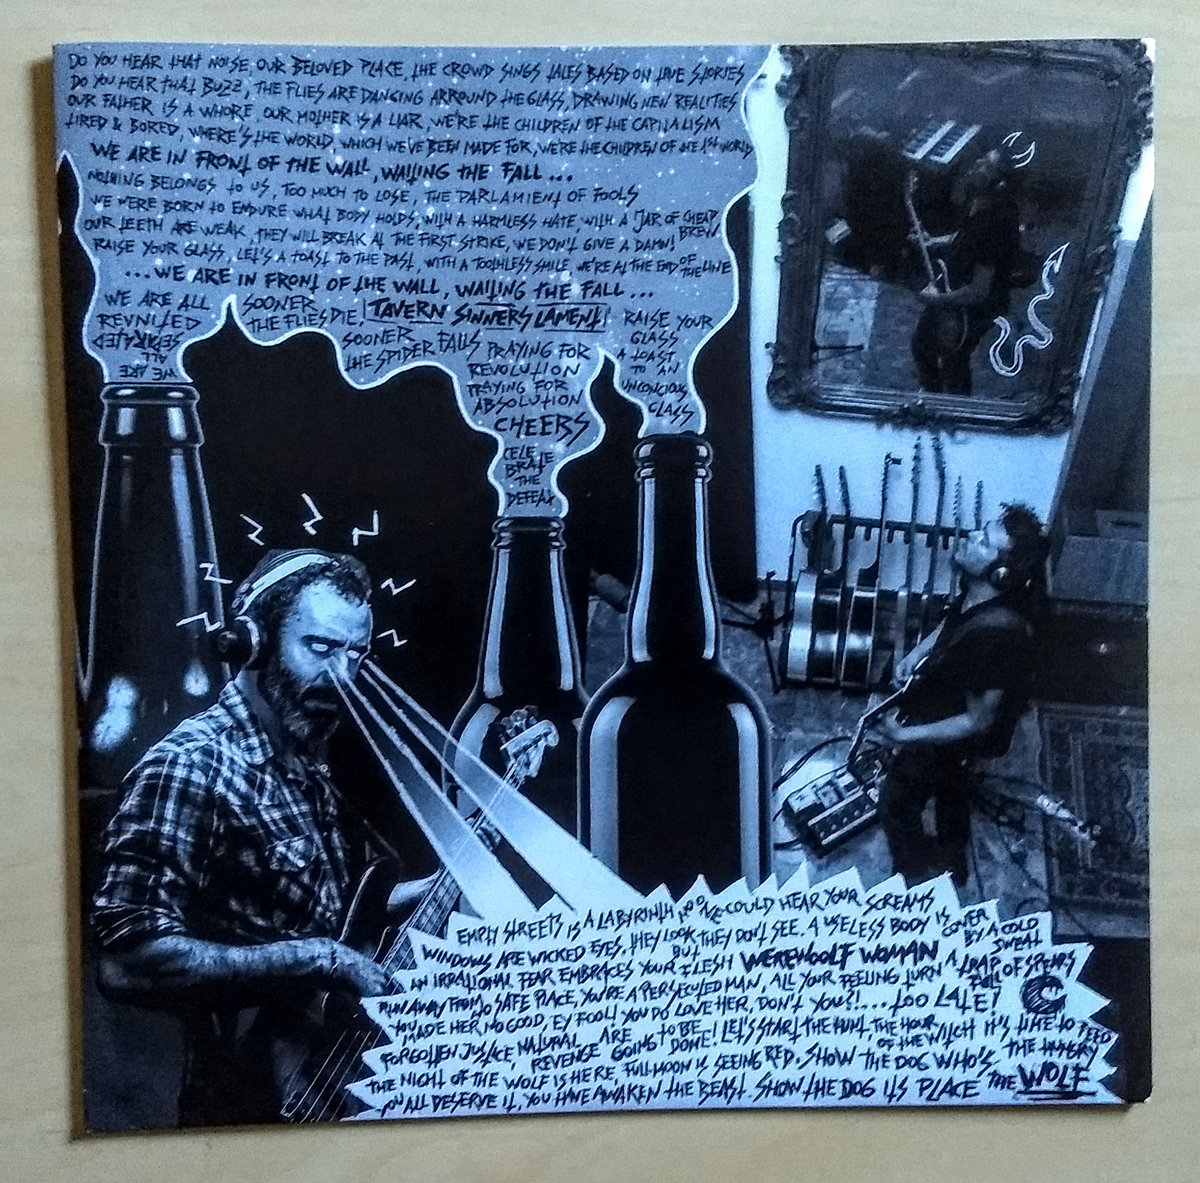 DO YOU HEAR THAT NOISE, OUR BELOVED PLACE, THE CROWD SINGS TALES BASED ON TRUE STORIES
DO YOU HEAR THAT BUZZ, THE FLIES ARE DANCING ARROUND THE GLASS, DRAWING NEW REALITIES
OUR FATHER IS A WHORE, OUR MOTHER IS A LIAR, WE'RE THE CHILDREN OF THE CAPITALISM
TIRED & BORED, WHERE'S THE WORLD, WHICH WE'VE BEEN MADE FOR, WE'RE THE CHILDREN OF THE 1st WORLD
WE ARE IN FRONT OF THE WALL, WAITING THE FALL...
NOTHING BELONGS TO US, TOO MUCH TO LOSE, THE PARLAMIENT OF FOOLS
WE WERE BORN TO ENDURE WHAT BODY HOLDS, WITH A HARMLESS HATE, WITH A JAR OF CHEAP BREW
OUR TEETH ARE WEAK, THEY WILL BREAK AT THE FIRST STRIKE, WE DON'T GIVE A DAMN!
RAISE YOUR GLASS, LET'S A TOAST TO THE PAST, WITH A TOOTHLESS SMILE, WE'RE AT THE END OF THE LINE
...WE ARE IN FRONT OF THE WALL, WAITING THE FALL...
WE ARE ALL
REUNITED
SEPARATED
ALL
WE ARE
SOONER
THE FLIES DIE,
TAVERN SINNERS LAMENT!
SOONER
THE SPIDER FALLS
PRAYING FOR
REVOLUTION
PRAYING FOR
ABSOLUTION
CHEERS
CELE
BRATE
THE
DEFEAT
RAISE YOUR
GLASS
A TOAST
TO AN
UNCONCIOUS
CLASS
EMPTY STREETS IS A LABYRINTH NO ONE COULD HEAR YOUR SCREAMS
WINDOWS ARE WICKED EYES, THEY LOOK BUT THEY DON'T SEE. A USELESS BODY IS COVER BY A COLD SWEAT
AN IRRATIONAL FEAR EMBRACES YOUR FLESH WEREWOOLF WOMAN A TRAP FULL OF SPEARS
RUN AWAY FROM NO SAFE PLACE, YOU'RE A PERSECUTED MAN, ALL YOUR FEELING TURN
YOU MADE HER NO GOOD, EY FOOL! YOU DO LOVE HER, DON'T YOU?!... TOO LATE!
FORGOTTEN JUSTICE, NATURAL REVENGE ARE GOING TO BE DONE! LET'S START THE HUNT, THE HOUR OF THE WITCH IT'S TIME TO FEED
THE NIGHT OF THE WOLF IS HERE, FULL MOON IS SEEING RED. SHOW THE DOG WHO'S THE HUNGRY
YOU ALL DESERVE IT, YOU HAVE AWAKEN THE BEAST. SHOW THE DOG ITS PLACE THE WOLF